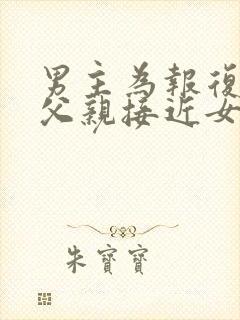 男主為報復
父親接近女
朱寶寶